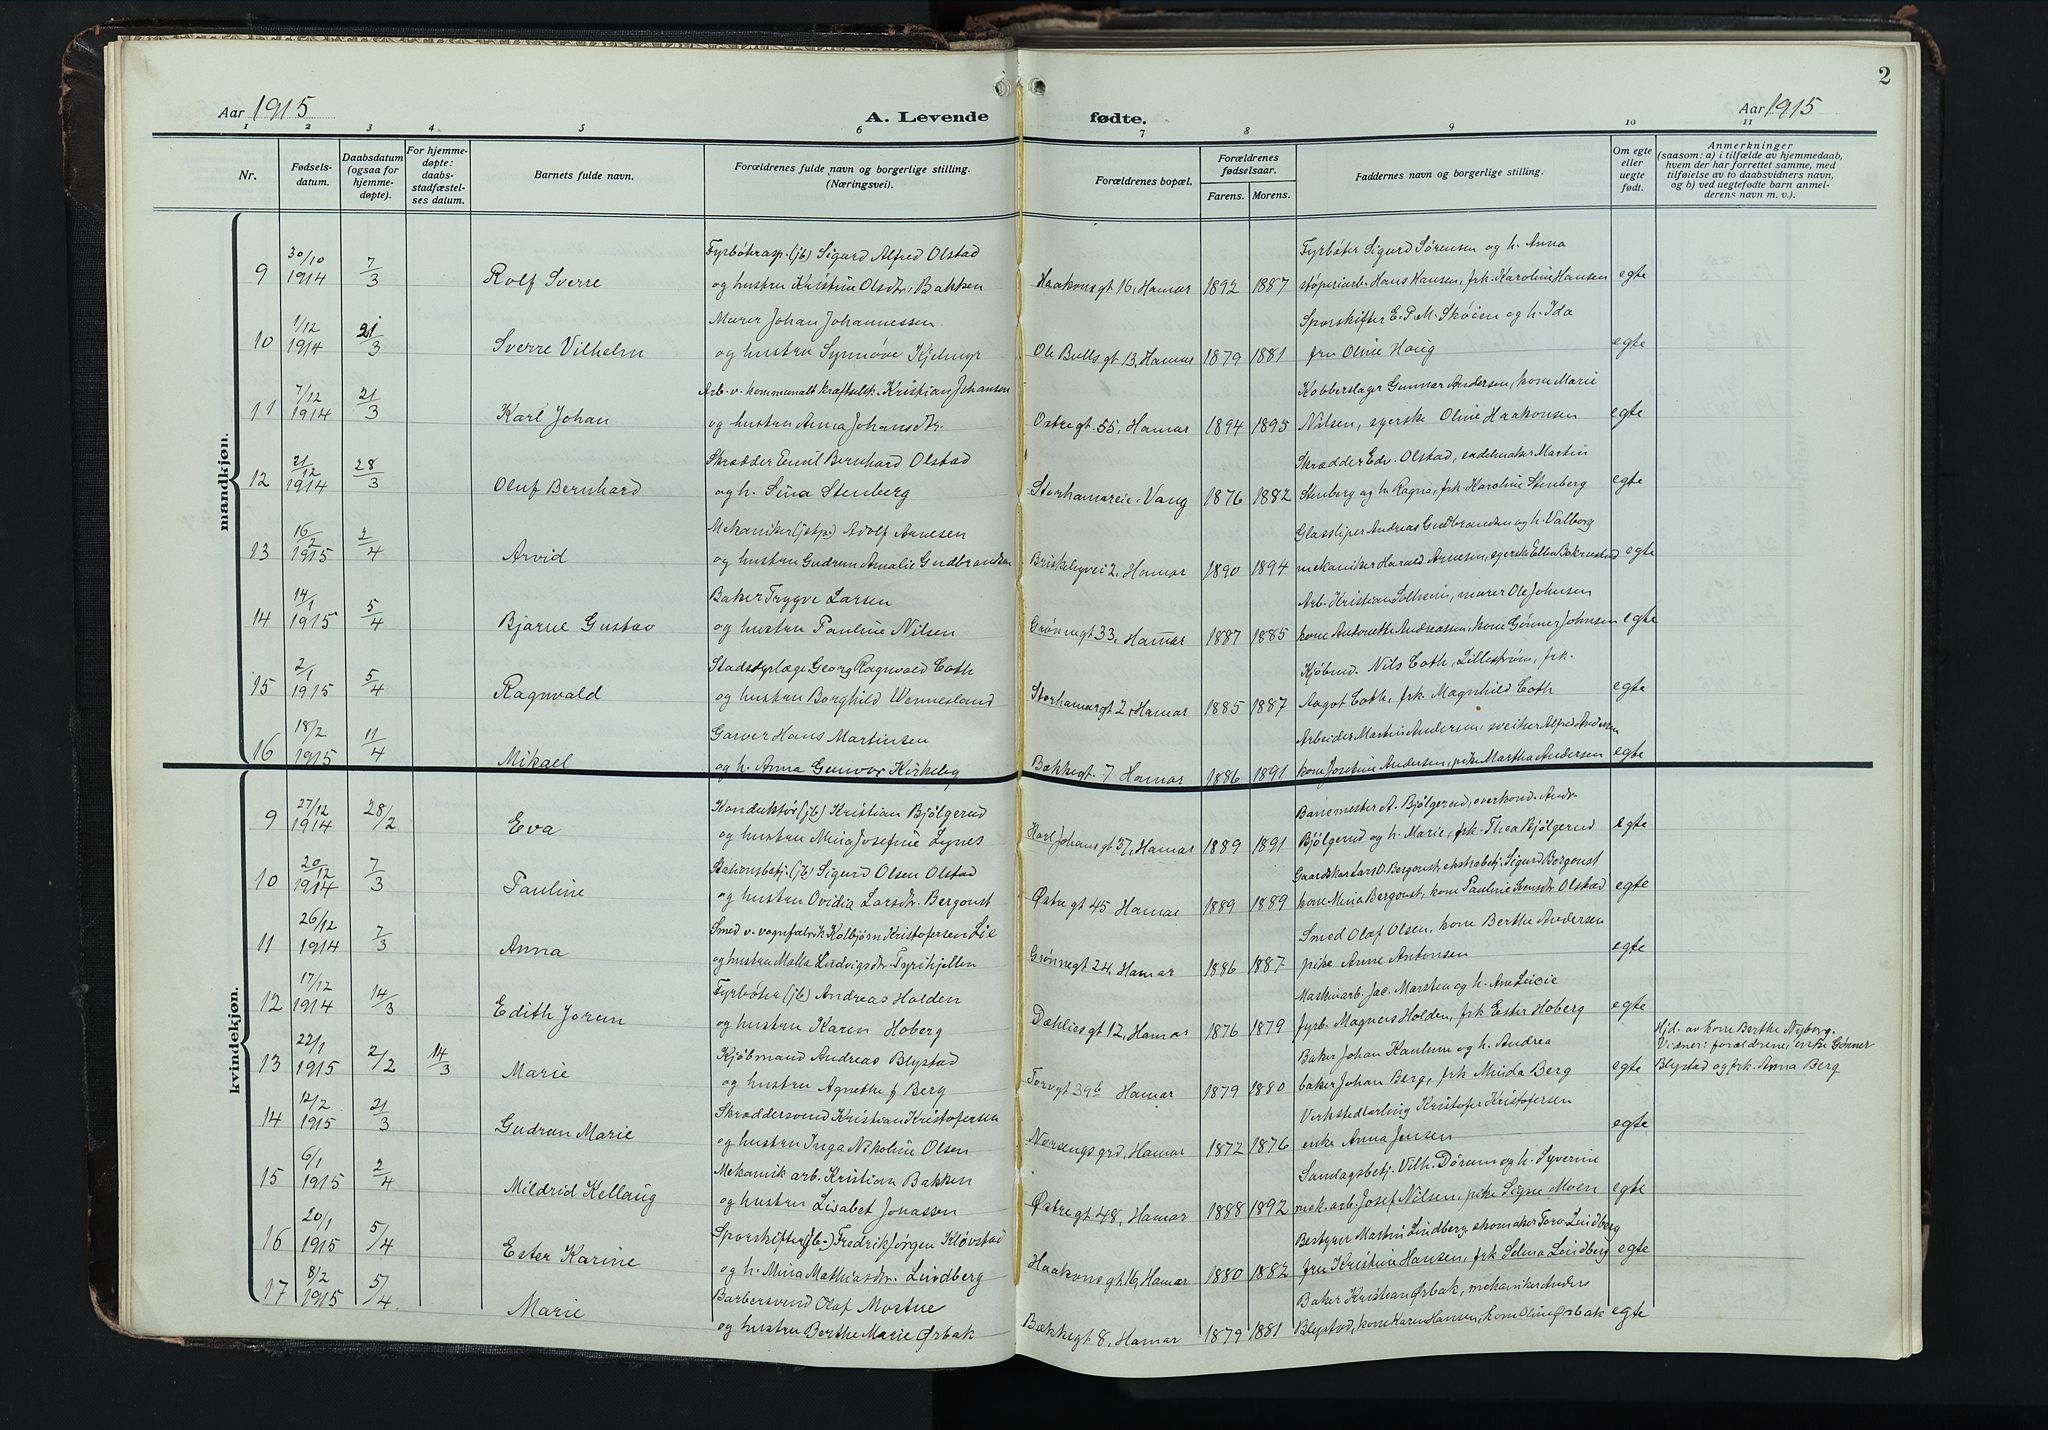 2
Aar 1915
A. Levende fødte.
Aar 1915
1 2 3 4 5 6 7 8 9 10 11
Nr.
Fødsels-datum.
Daabsdatum (ogsaa for hjemme-døpte).
For hjemme-døpte: daabs-stadfæstel-ses datum.
Barnets fulde navn.
Forældrenes fulde navn og borgerlige stilling. (Næringsvei).
Forældrenes bopæl.
Forældrenes fødselsaar.
Farens. Morens.
Faddernes navn og borgerlige stilling.
Om egte eller uegte født.
Anmerkninger (saasom: a) i tilfælde av hjemmedaab, hvem der har forrettet samme, med tilføielse av to daabsvidners navn, og b) ved uegtefødte barn anmel-derens navn m. v.).
mandkjøn.
30/10 Fyrbøterasp. (jb) Sigurd Alfred Olstad Fyrbøter Sigurd Sørensen og h. Anna
9 1914 7/3 Rolf Sverre og hustru Kristine Olsdtr. Bakken Haakonsgt 16, Hamar 1892 1887 støperiarb. Hans Hansen, frk. Karoline Hansen egte
1/12 Murer Johan Johannessen Sporskifter E. P. M. Skøien og h. Ida
10 1914 21/3 Sverre Vilhelm og hustru Synnøve Kjelmyr Ole Bullsgt 13, Hamar 1879 1881 fru Oline Haug egte
7/12 Arb. v. kommunalt kraftselsk. Kristian Johansen Kobberslager Gunnar Andersen, kone Marie
11 1914 21/3 Karl Johan og hustru Anna Johansdtr. Østregt. 55, Hamar 1894 1895 Nilsen, syerske Oline Haakonsen egte
21/12 Skrædder Emil Bernhard Olstad Skrædder Edv. Olstad, sadelmaker Martin
12 1914 28/3 Oluf Bernhard og h. Sina Stenberg Storhamareie, Vang 1876 1882 Stenberg og h. Ragna, frk. Karoline Stenberg egte
16/2 Mekaniker (jstp) Adolf Arnesen Glassliper Andreas Gudbrandsen og h. Valborg
13 1915 2/4 Arvid og hustru Gudrun Amalie Gudbrandsen Briskebyvei 2, Hamar 1890 1894 mekaniker Harald Arnesen, syerske Ellen egte
14/1 Baker Trygve Larsen Arb. Kristian Solheim, murer Ole Johnsen
14 1915 5/4 Bjarne Gustav og hustru Pauline Nilsen Grønnegt 33, Hamar 1887 1885 kone Antonette Andreassen, kone Gønner Johnsen egte
2/1 Stadsdyrlæge Georg Ragnvald Coth Kjøbmd. Nils Coth, Lillestrøm, frk.
15 1915 5/4 Ragnvald og hustru Borghild Wennesland Storhamargt 2, Hamar 1885 1887 Aagot Coth, frk. Magnhild Coth egte
18/2 Garver Hans Martinsen Arbeider Martin Andersen, sveiser Alfred Andersen
16 1915 11/4 Mikael og h. Anna Gunvor Kirkeby Bækkegt. 7 Hamar 1886 1891 kone Josefine Andersen, pike Martha Andersen egte
kvindekjøn.
27/12 Konduktør (jb) Kristian Bjølgerud Banemester A. Bjølgerud, overkond. Andr.
9 1914 28/2 Eva og hustru Mina Josefine Lynes Karl Johansgt 57, Hamar 1889 1891 Bjølgerud og h. Marie, frk. Thea Bjølgerud egte
20/12 Stationsbetj. (jb) Sigurd Olsen Olstad Gaardskar Lars O. Bergqust, ekstrabetj. Sigurd Bergqust
10 1914 7/3 Pauline og hustru Ovidia Larsdtr. Bergqust Østregt 45 Hamar 1889 1889 kone Mina Bergqust, kone Pauline Svensdtr. Olstad egte
26/12 Smed v. vognfabrik Kolbjørn Kristofersen Lie Smed Olaf Olsen, kone Berthe Andersen
11 1914 7/3 Anna og hustru Malla Ludvigsdtr. Tyrihjellen Grønnegt 24, Hamar 1886 1887 pike Anne Antonsen egte
17/12 Fyrbøter (jb) Andreas Holden Maskinarb. Jac. Marsten og h. Ane Leicie
12 1914 14/3 Edith Jorun og hustru Karen Hoberg Dæhliesgt 12, Hamar 1876 1879 fyrb. Magnus Holden, frk Ester Hoberg egte
22/1 Kjøbmand Andreas Blystad Baker Johan Kaulum og h. Andrea Hjd. av kone Berthe Nyborg.
13 1915 2/2 14/3 Marie og hustru Agnethe f Berg Torvgt 39b Hamar 1879 1880 baker Johan Berg, frk Minda Berg egte Vidner: forældrene, enke Gønner
Blystad og frk. Anna Berg
12/2 Skræddersvend Kristian Kristofersen Verkstedlærling Kristofer Kristofersen
14 1915 21/3 Gudrun Marie og hustru Inga Nikoline Olsen Norsengsgrd, Hamar 1872 1876 enke Anna Jensen egte
6/1 Mekanik arb. Kristian Bakken Sundagsbetj. Vilh. Dørum og h. Syverine
15 1915 2/4 Mildrid Kellaug og hustru Lisabet Jonassen Østregt 48, Hamar 1888 1892 mek. arb. Josef Nilsen, pike Signe Moen egte
20/1 Sporskifter (jb.) Fredrik Jørgen Kløvstad Bestyrer Martin Lindberg, skomaker Tora Lindberg
16 1915 5/4 Ester Karine og h. Mina Mathiasdtr. Lindberg Haakonsgt 16, Hamar 1880 1882 fru Kristine Hansen, frk Selma Lindberg egte
8/2 Barbersvend Olaf Mostue Baker Kristian Ørbak, mekaniker Anders
17 1915 5/4 Marie og hustru Berthe Marie Ørbak Bækkegt 8, Hamar 1879 1881 Blystad, kone Karen Hansen, kone Oline Ørbak egte